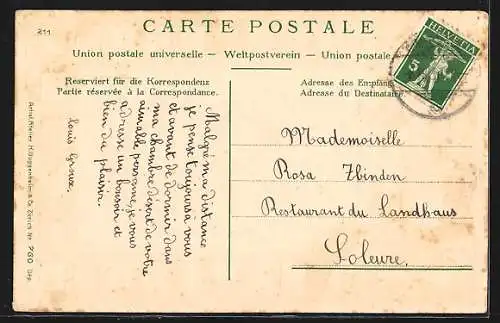 211
CARTE POSTALE
Union postale universelle — Weltpostverein — Union postale
HELVETIA
5
Reserviert für die Korrespondenz
Partie réservée à la Correspondance.
Adresse des Empfäng
Adresse du Destinataire
Malgré ma distance
je pense toujours a vous
et avant de dormir dans
ma chambre désert de votre
aimable personne, je vous
adresse un bonsoir et
bien du plaisir.
Louis
Mademoiselle
Rosa Zbinden
Restaurant du Landhaus
Soleure.
H. Guggenheim & Co. Zürich Nr. 780 Dep.